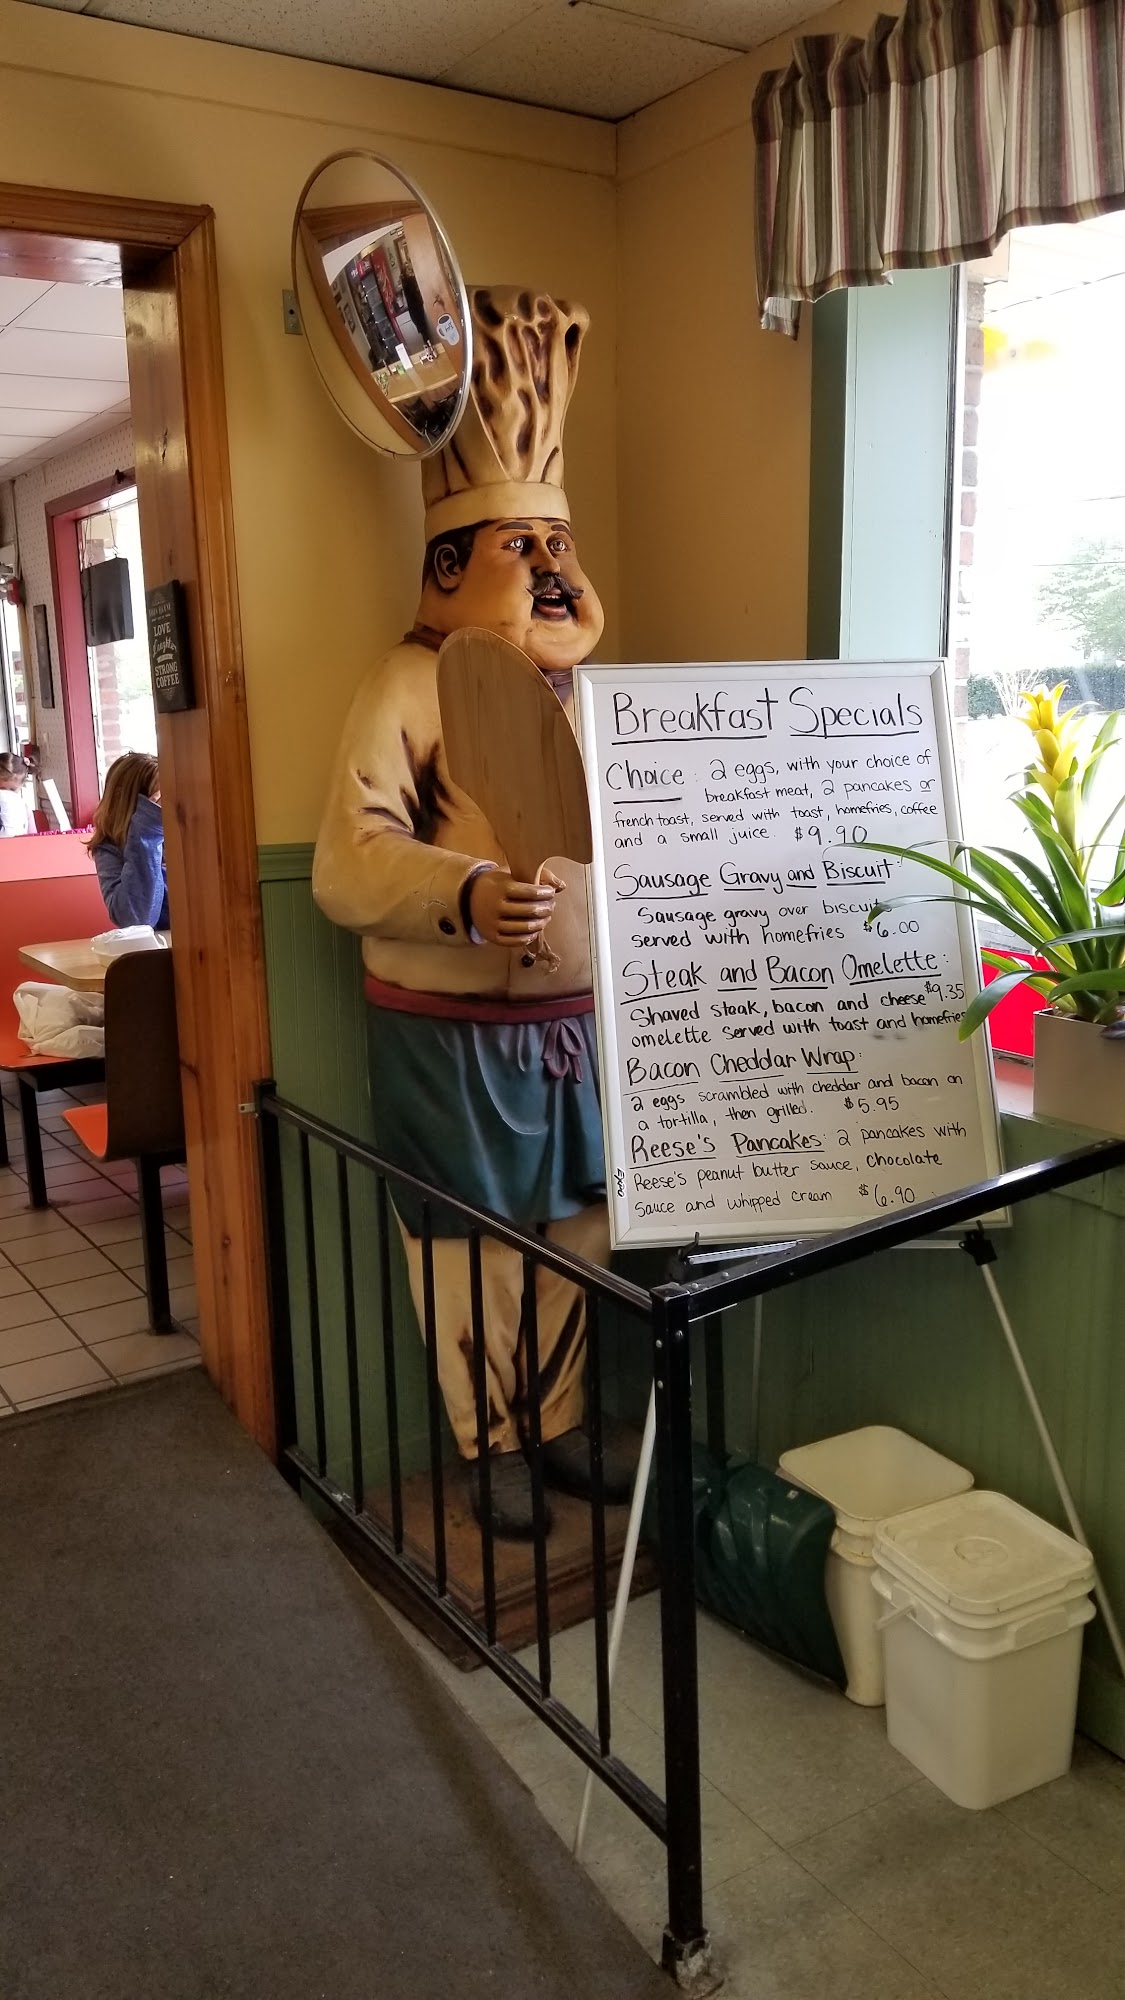 LOVE
Laughter
STRONG
COFFEE
Breakfast Specials
Choice : 2 eggs, with your choice of
breakfast meat, 2 pancakes or
french toast, served with toast, homefries, coffee
and a small juice. $9.90
Sausage Gravy and Biscuit:
Sausage gravy over biscuits
served with homefries $6.00
Steak and Bacon Omelette:
Shaved steak, bacon and cheese $9.35
omelette served with toast and homefries
Bacon Cheddar Wrap:
2 eggs scrambled with cheddar and bacon on
a tortilla, then grilled. $5.95
Reese's Pancakes: 2 pancakes with
Reese's peanut butter sauce, chocolate
sauce and whipped cream $6.90
EXPO